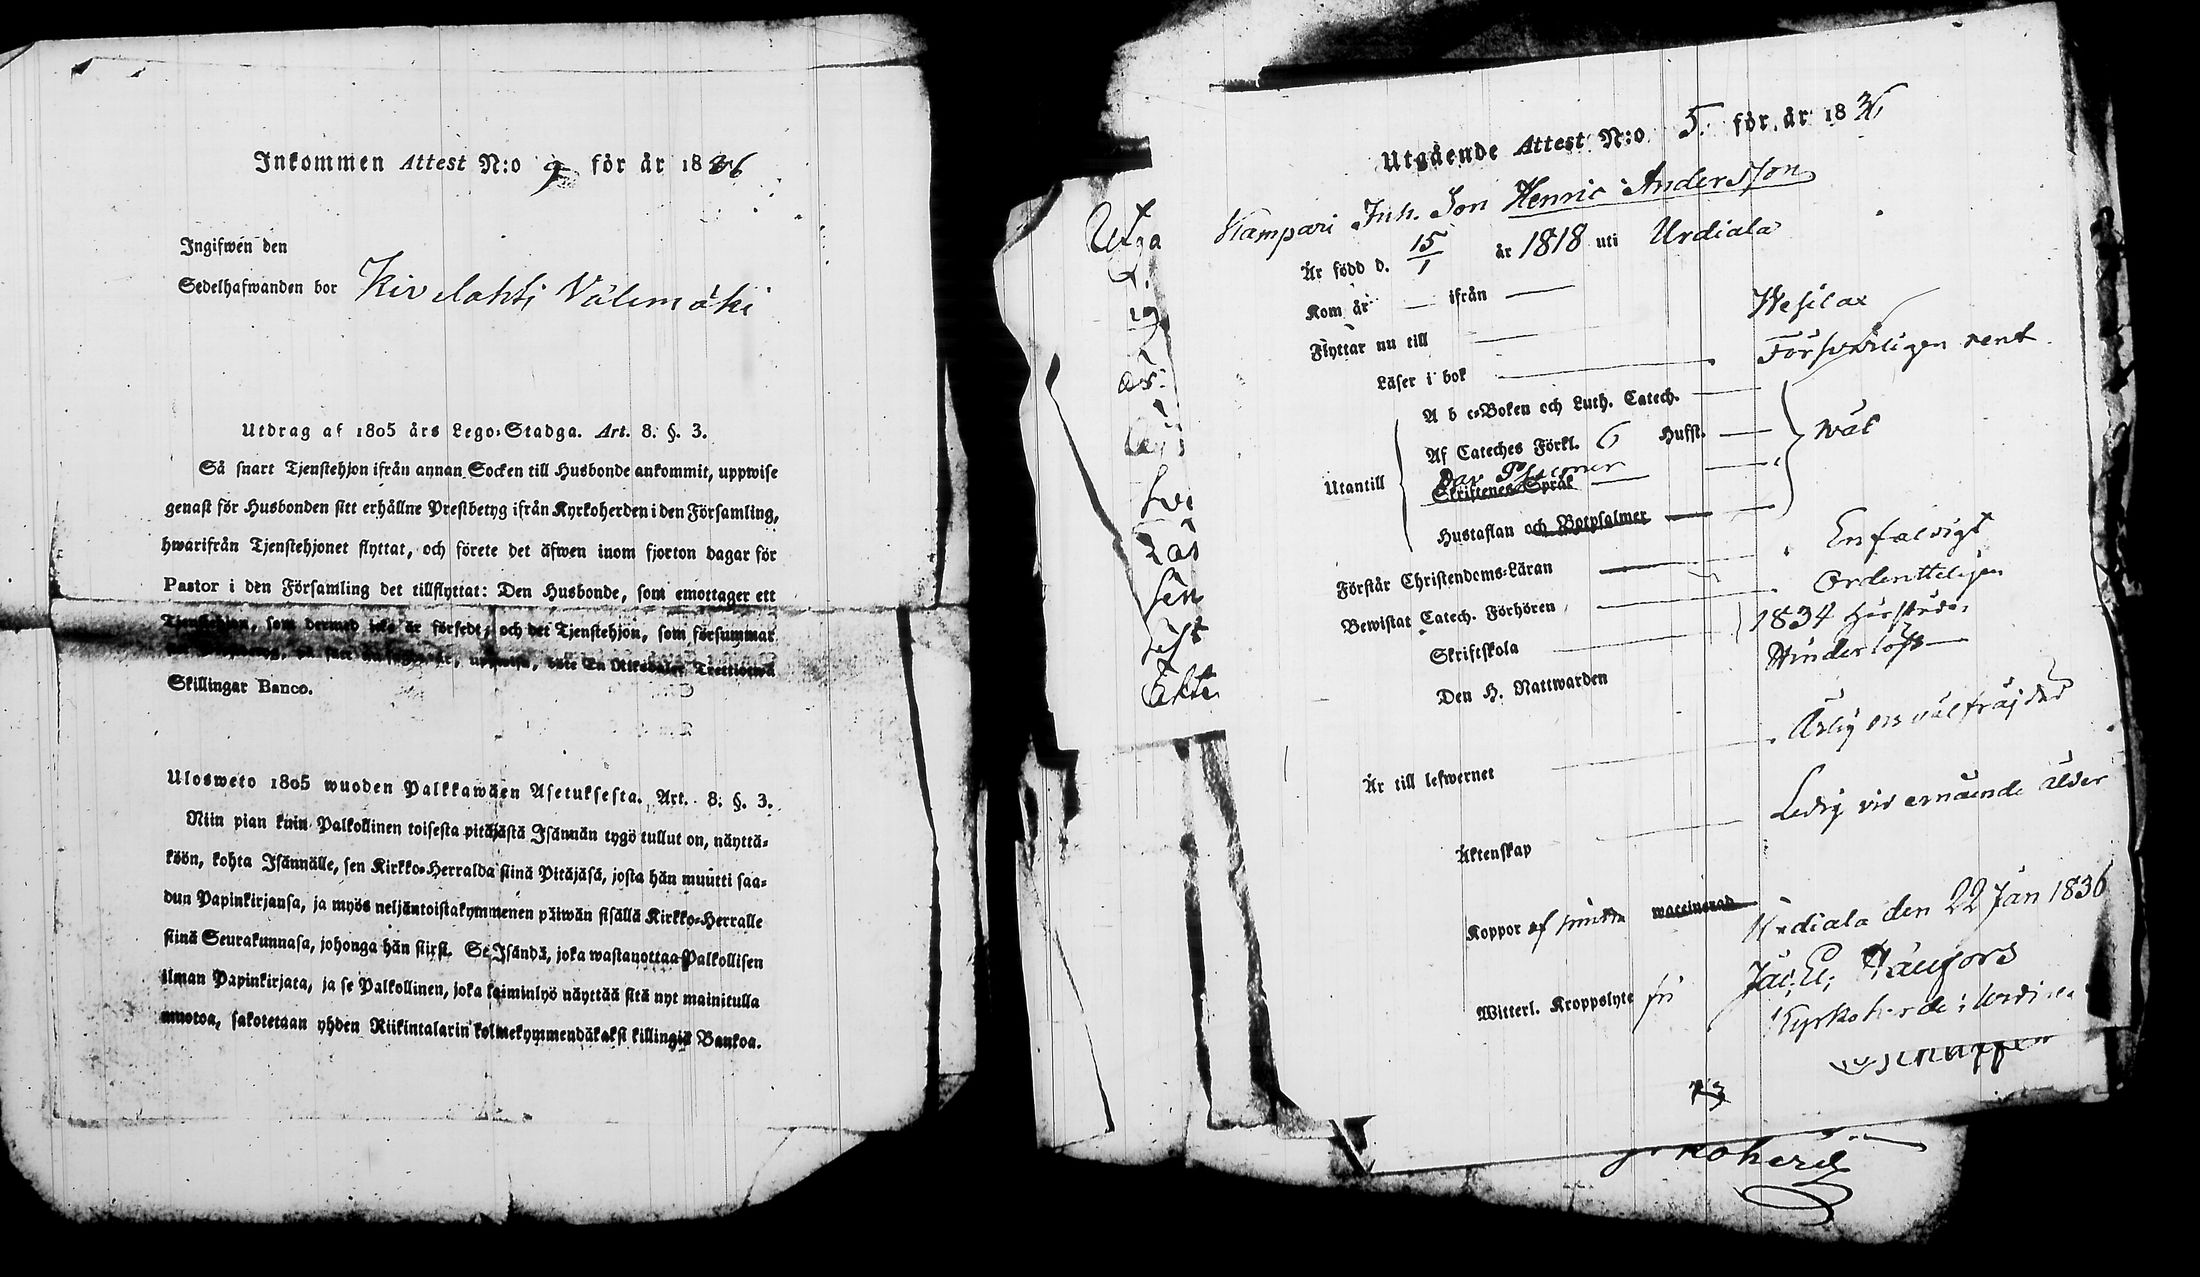 Inkommen Attest N:o 9 för år 1836
Ingifwen den
Sedelhafwanden bor Kivelahti Välimäki
Utdrag af 1805 års Lego-Stadga. Art. 8. §. 3.
Så snart Tjenstehjon ifrån annan Socken till Husbonde ankommit, uppwise
genast för Husbonden sitt erhållne Prestbetyg ifrån Kyrkoherden i den Församling,
hwarifrån Tjenstehjonet flyttat, och förete det äfwen inom fjorton dagar för
Pastor i den Församling det tillflyttat: Den Husbonde, som emottager ett
Tjenstehjon, som dermed icke är försedt, och det Tjenstehjon, som försummar
uppwisa, böte En Riksdaler Trettiotwå
Skillingar Banco.
Ulosweto 1805 wuoden Palkkawäen Asetuksesta. Art. 8. §. 3.
Niin pian kuin Palkollinen toisesta pitäjästä Isännän tygö tullut on, näyttä-
köön, kohta Isännälle, sen Kirkko-Herralda siinä Pitäjäsä, josta hän muutti saa-
dun Papinkirjansa, ja myös neljäntoistakymmenen päiwän sisällä Kirkko-Herralle
siinä Seurakunnasa, johonga hän siirsi. Se Isändä, joka wastanottaa Palkollisen
ilman Papinkirjata, ja se Palkollinen, joka laiminlyö näyttää sitä nyt mainitulla
muotoa, sakotetaan yhden Riikintalarin kolmekymmendäkaksi killingiä Bankoa.
Utgående Attest N:o 5. för år 1836
Kampari Inh. Son Henric Andersson
Är född d. 15/1 år 1818 uti Urdiala
Kom år — ifrån —
Flyttar nu till — Wesilax
Läser i bok — Försvarligen rent.
A b c-Boken och Luth. Catech.
Af Cateches Förkl. 6 Hufst. — wäl
Utantill
Dav Psalmer
Skriftenes Språk
Hustaflan och Botpsalmer
Förstår Christendoms-Läran — Enfaldigt
Bewistat Catech. Förhören — Ordentteligen
Skriftskola — 1834
Den H. Nattwarden Hinderlös
Är till lefwernet — Ärlig och wälfräjdad
Äktenskap — Ledig vid ernående ålder
Koppor af waccinerad
Urdiala den 22 Jan 1836
Witterl. Kroppslyte fri
Kyrkoherde i Urdiala
73
Utga
Är
Läs
Ekte